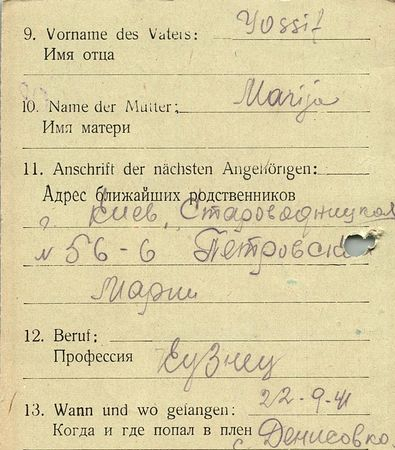 9. Vorname des Vaters: Yossif
Имя отца
10. Name der Mutter: Marija
Имя матери
11. Anschrift der nächsten Angehörigen:
Адрес ближайших родственников
г. Киев, Старовадницкая
№ 56-6 Петровская
Марии
12. Beruf:
Профессия Кузнец
13. Wann und wo gefangen: 22-9-41
Когда и где попал в плен с. Денисовка.